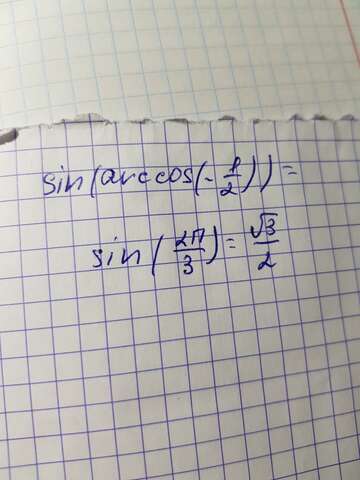 sin(arccos(-1/2))=
sin(2π/3)=√3/2